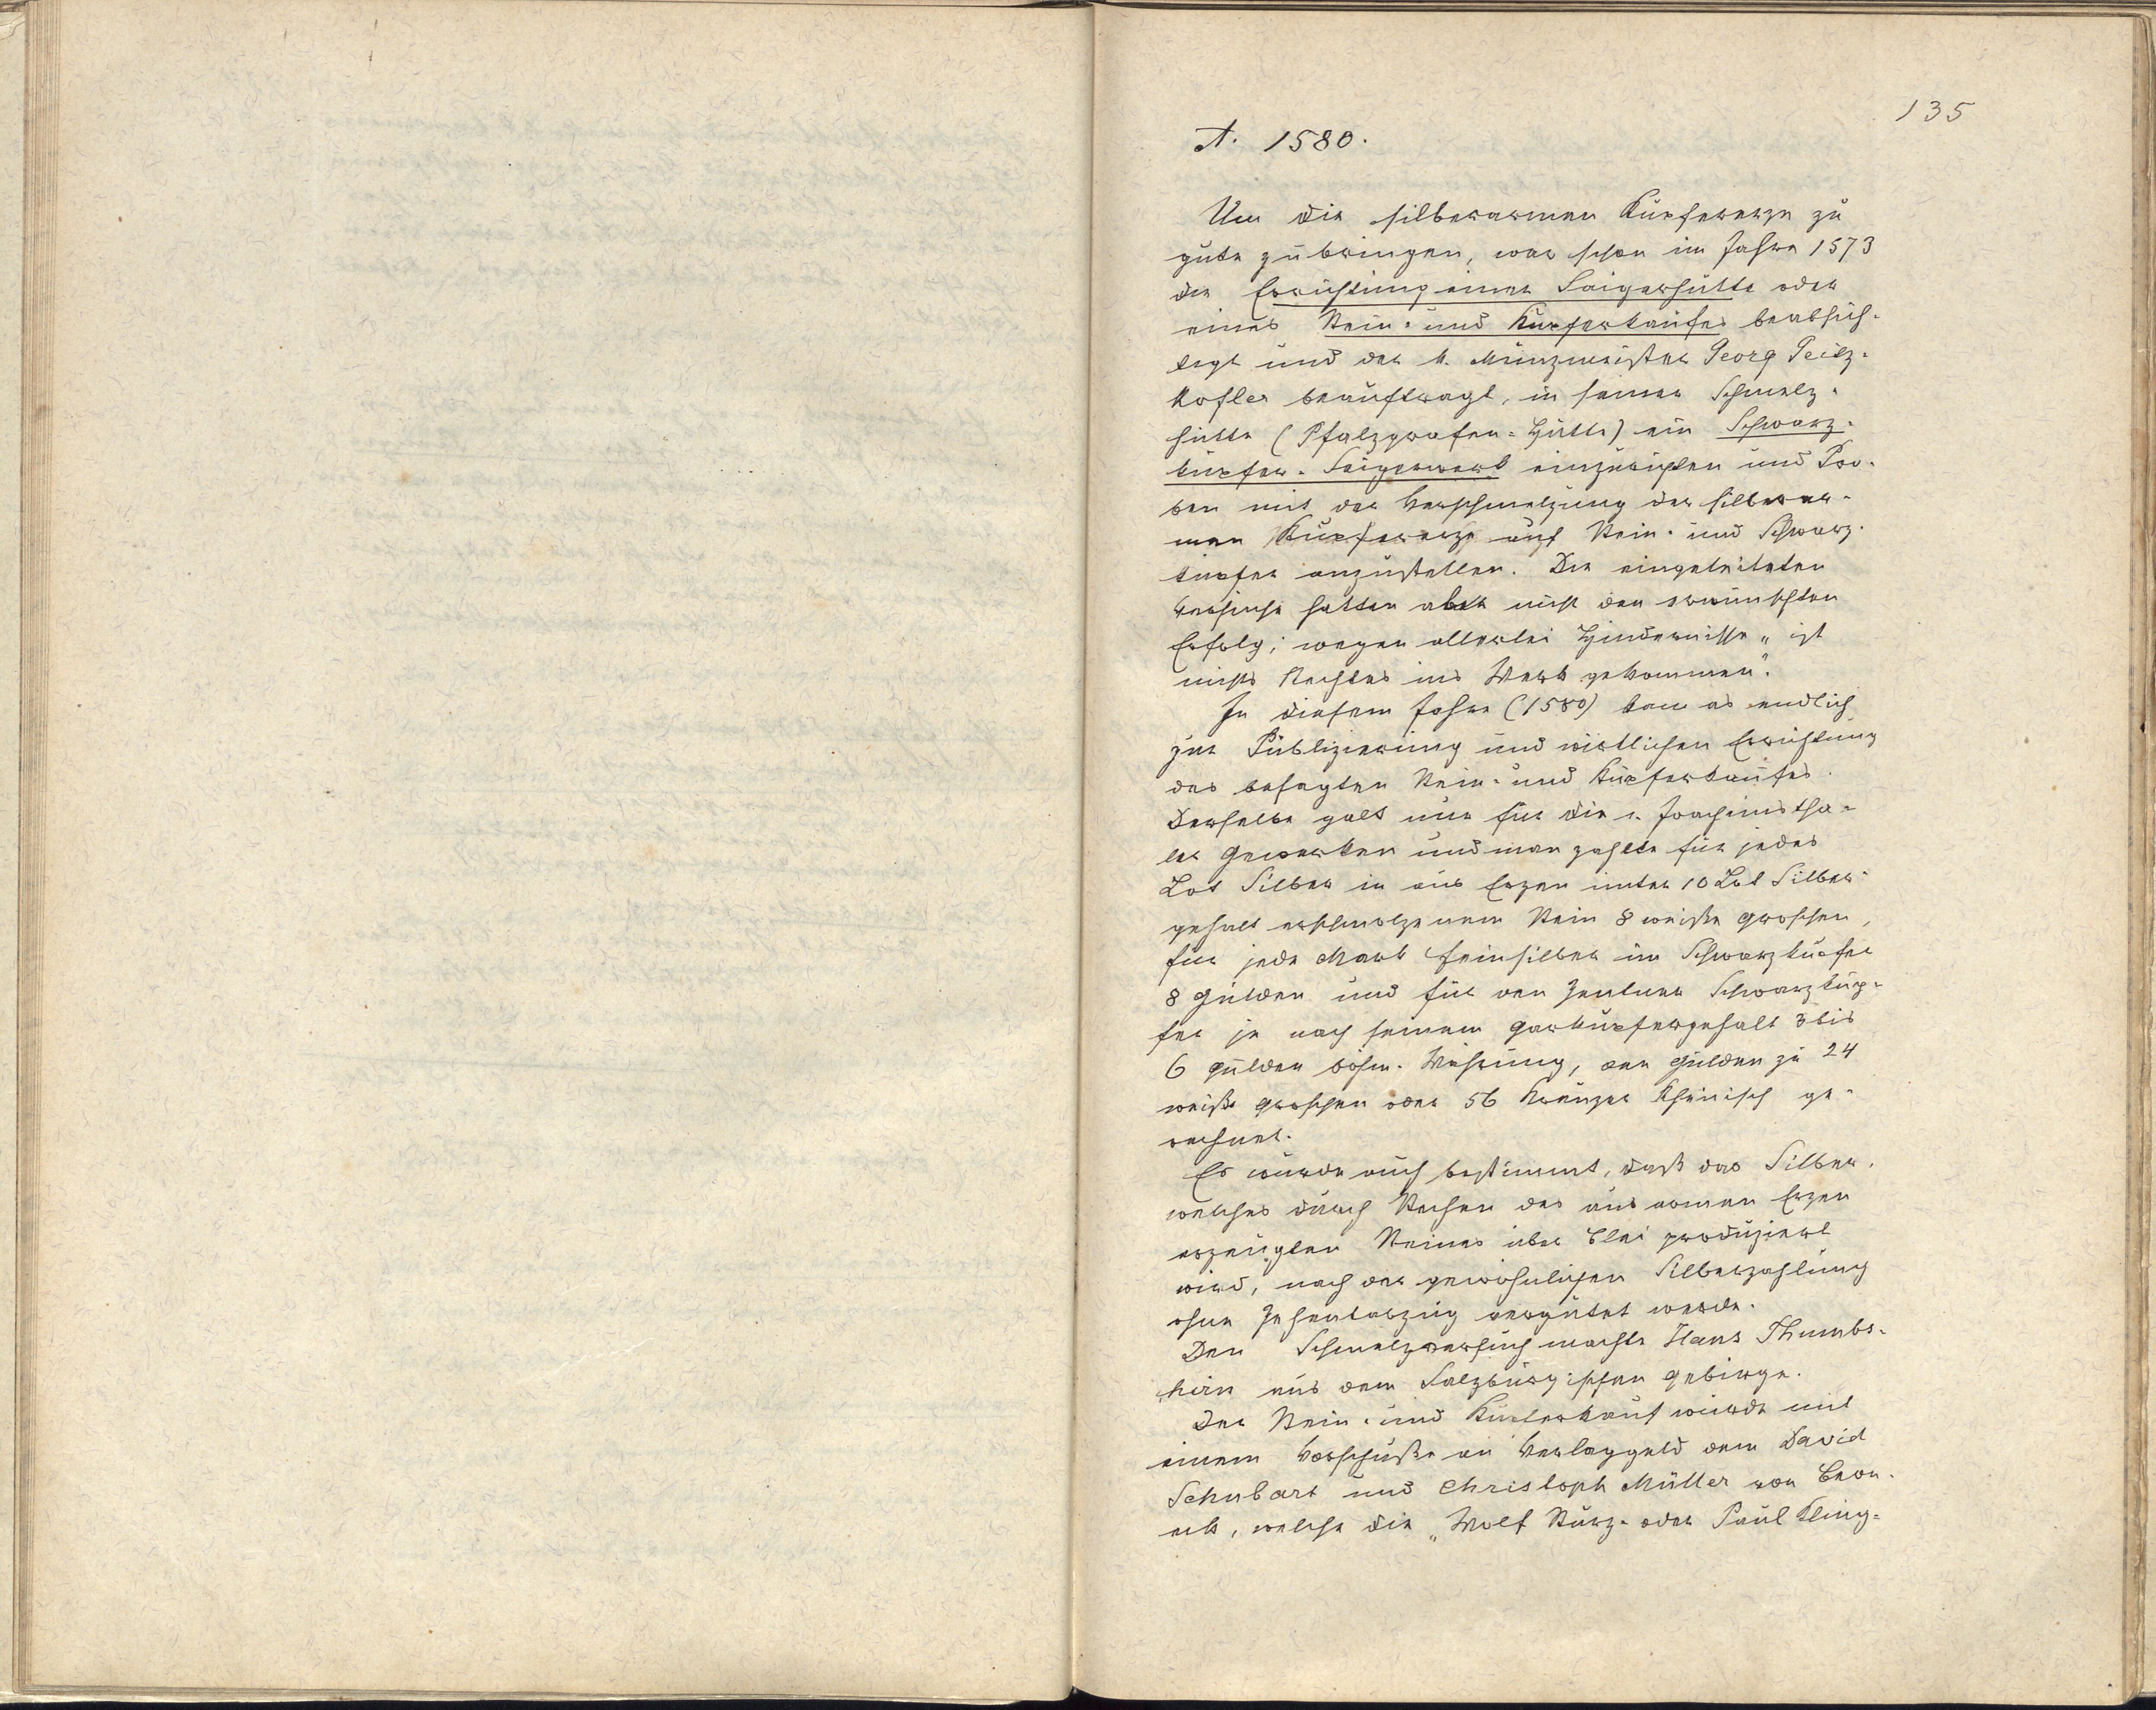 135
A. 1580.
Um die silberarmen Kupfererze zu
gute zu bringen, war schon im Jahre 1573
die Errichtung einer Saigerhütte oder
eines Stein- und Kupferkaufes beabsich-
tigt und der k. Münzmeister Georg Geitz-
kofler beauftragt, in seiner Schmelz-
hütte (Pfalzgrafen-Hütte) ein Schwarz-
kupfer-Saigerwerk einzurichten und Pro-
ben mit der Verschmelzung der silberar-
men Kupfererze auf Stein- und Schwarz-
kupfer anzustellen. Die eingeleiteten
Versuche hatten aber nicht den erwünschten
Erfolg; wegen allerlei Hindernisse „ist
nichts Rechtes ins Werk gekommen".
In diesem Jahre (1580) kam es endlich
zur Publizierung und wirklichen Errichtung
des besagten Stein- und Kupferkaufes.
Derselbe galt nur für die s. Joachimstha-
ler Gewerken und man zahlte für jedes
Lot Silber in aus Erzen unter 10 Lot Silber-
gehalt erschmolzenem Stein 8 weiße Groschen,
für jede Mark Feinsilber im Schwarzkupfer
8 Gulden und für den Zentner Schwarzkup-
fer je nach seinem Garkupfergehalt 3 bis
6 Gulden böhm. Währung, den Gulden zu 24
weiße Groschen oder 56 Kreuzer Rheinisch ge-
rechnet.
Es wurde auch bestimmt, daß das Silber,
welches durch Stechen des aus armen Erzen
erzeugten Steines über Blei produziert
wird, nach der gewöhnlichen Silberzahlung
ohne Zehentabzug vergütet werde.
Den Schmelzversuch machte Hans Thumbs-
hirn aus dem Salzburgischen Gebirge.
Der Stein- und Kupferkauf wurde mit
einem Vorschuße an Verlaggeld dem David
Schubart und Christoph Müller von Bern-
eck, welche die „Wolf Sturz- oder Paul Kling-